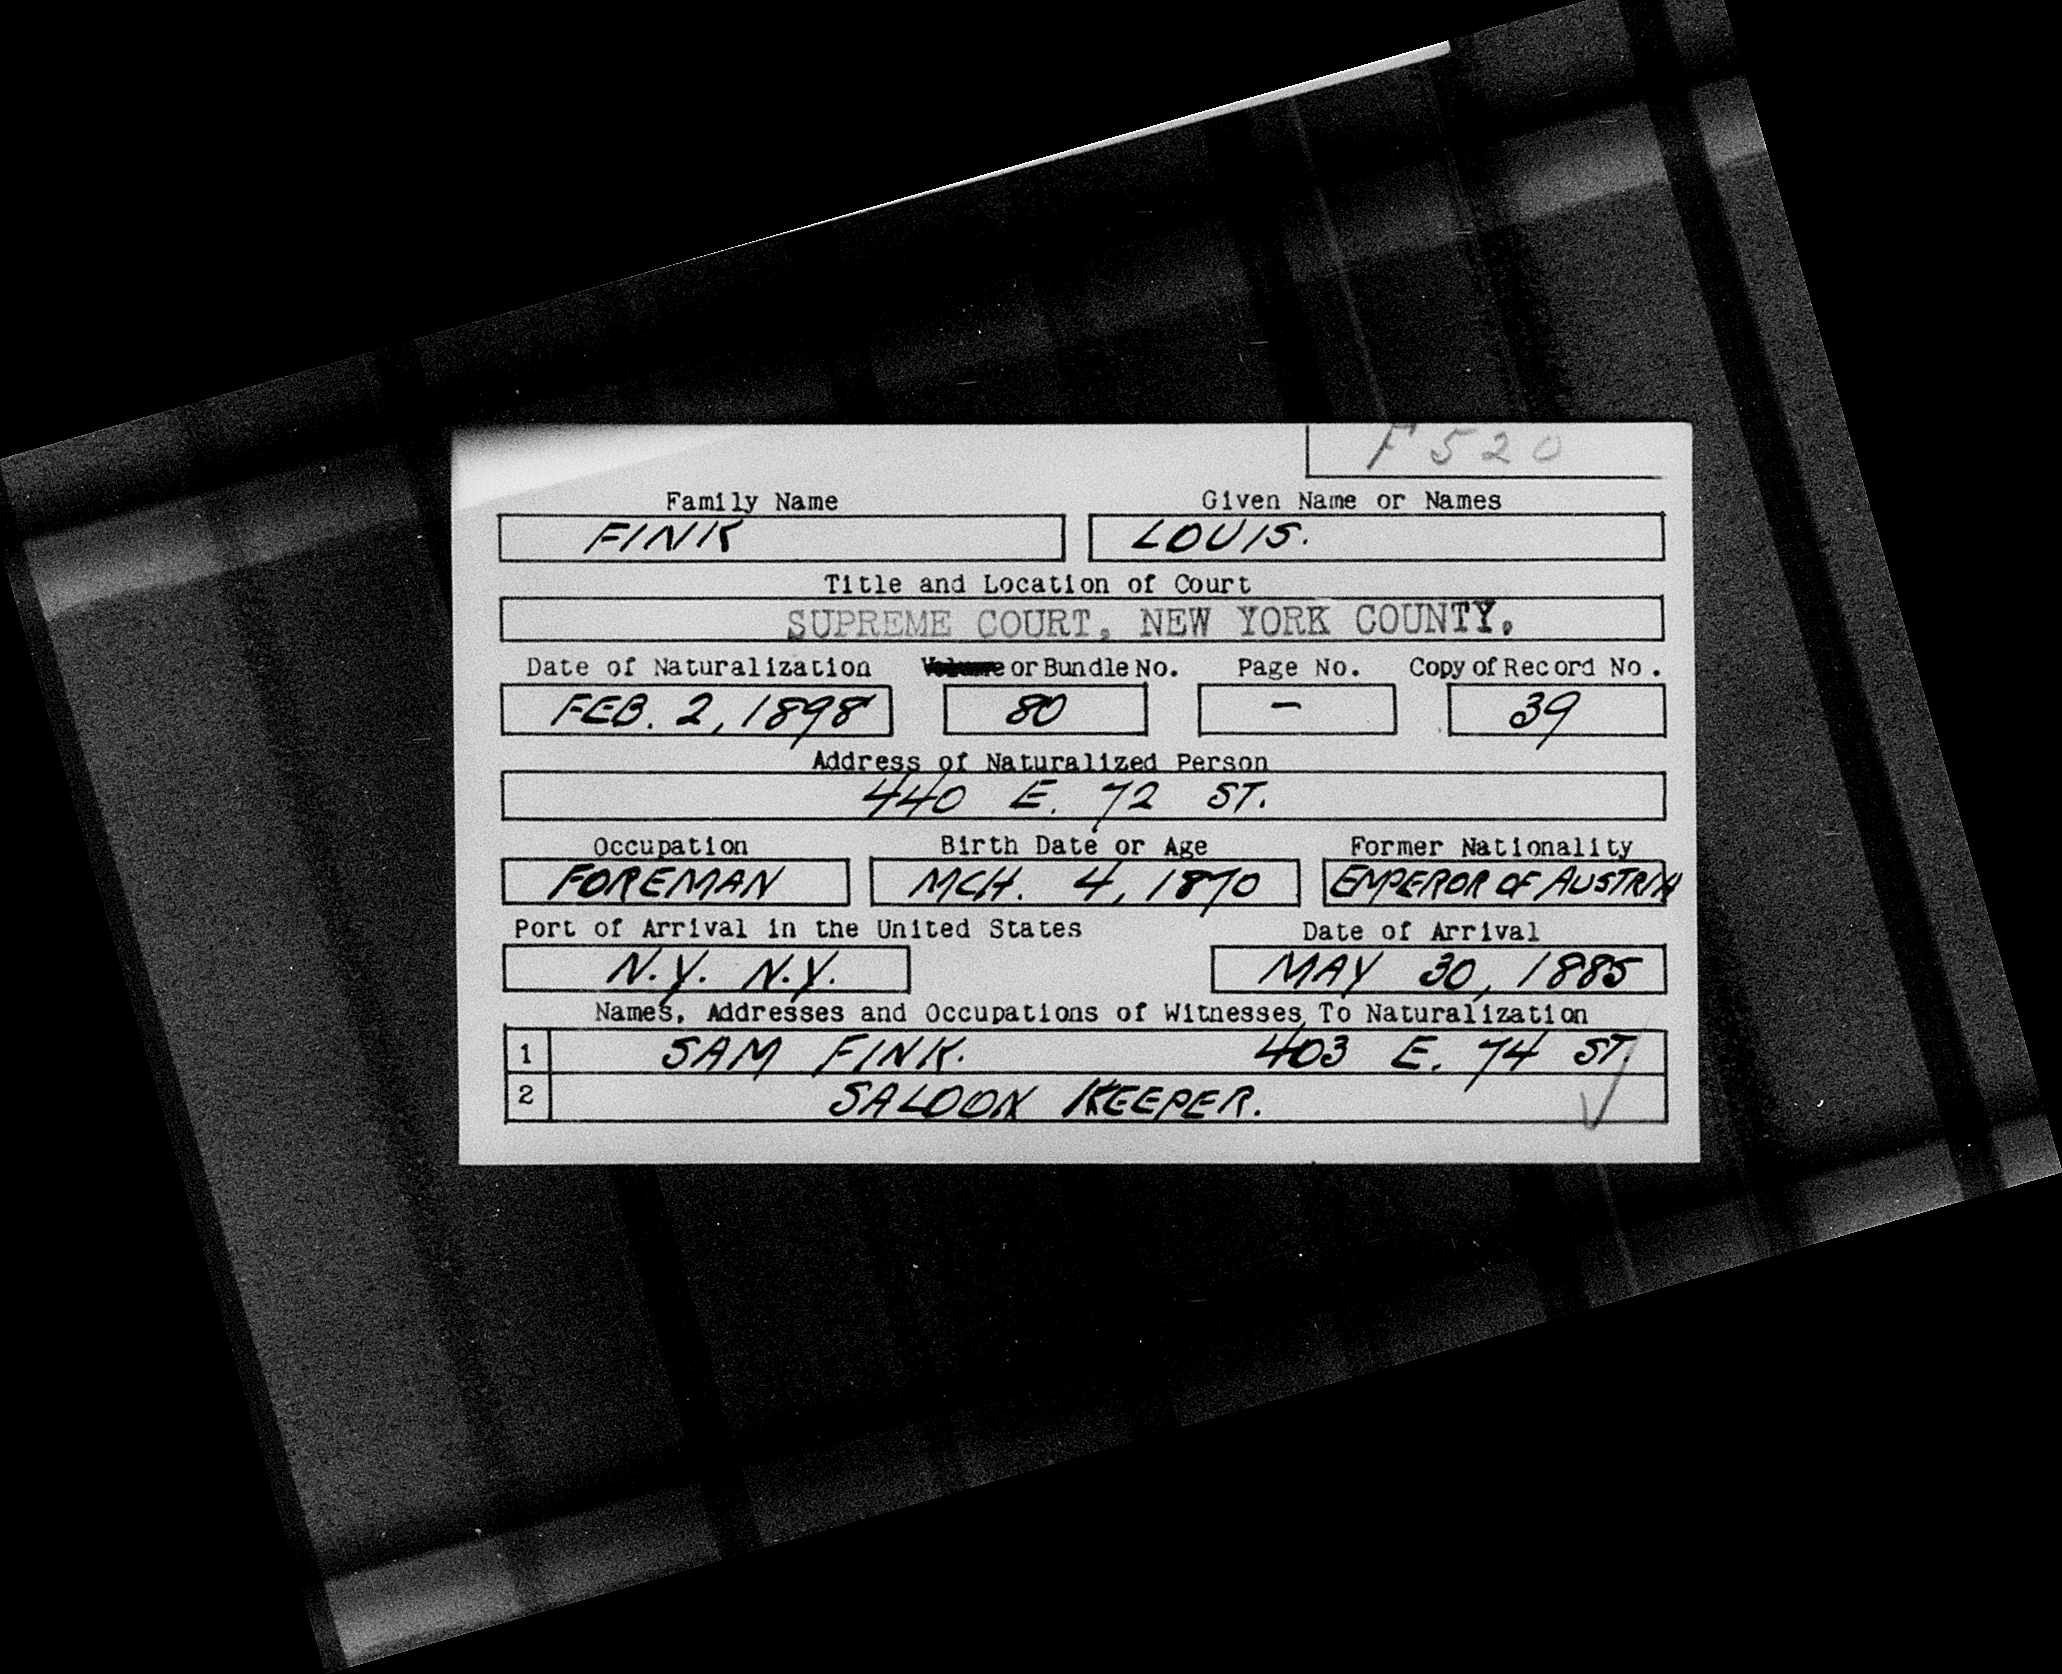 F 520
Family Name Given Name or Names
FINK LOUIS.
Title and Location of Court
SUPREME COURT, NEW YORK COUNTY.
Date of Naturalization Volume or Bundle No. Page No. Copy of Record No.
FEB. 2, 1898 80 - 39
Address of Naturalized Person
440 E. 72 ST.
Occupation Birth Date or Age Former Nationality
FOREMAN MCH. 4, 1870 EMPEROR OF AUSTRIA
Port of Arrival in the United States Date of Arrival
N.Y. N.Y. MAY 30, 1885
Names, Addresses and Occupations of Witnesses To Naturalization
1 SAM FINK. 403 E. 74 ST.
2 SALOON KEEPER.